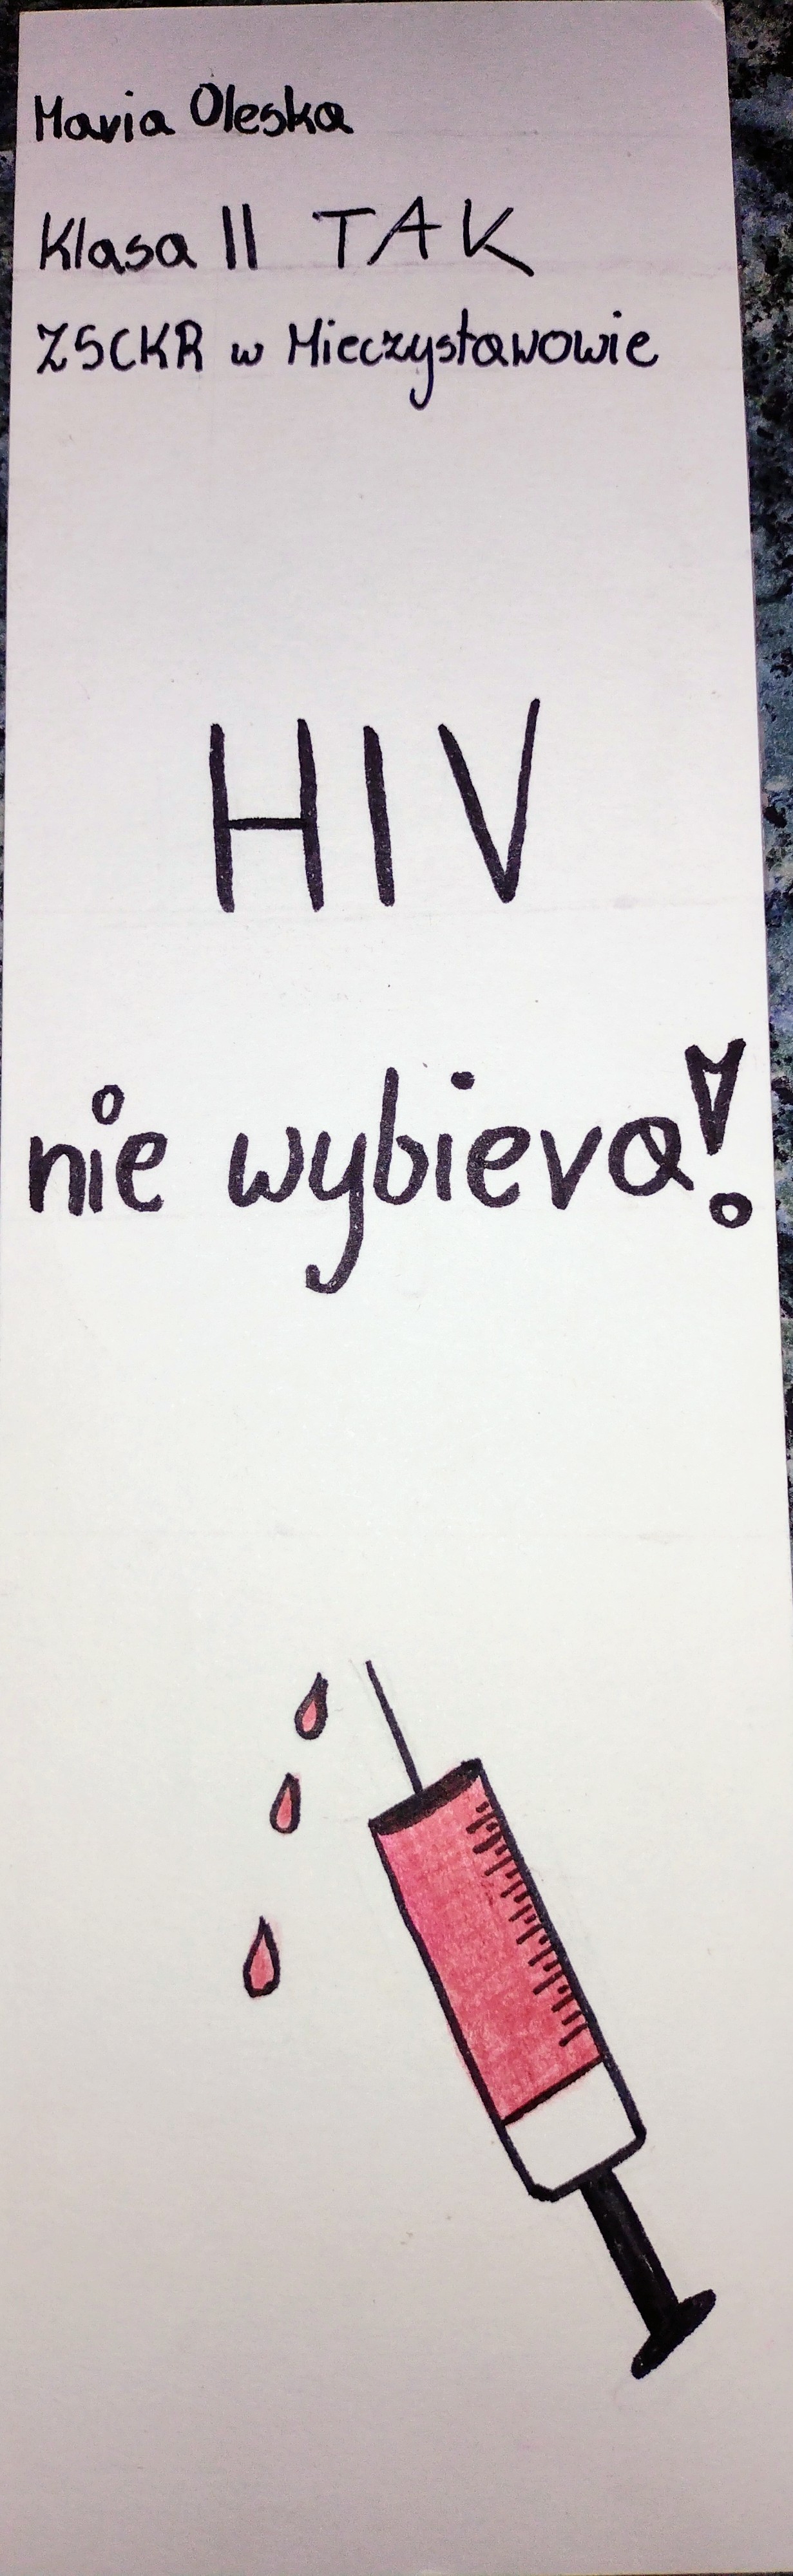 Maria Oleska
Klasa II TAK
ZSCKR w Mieczysławowie
HIV
nie wybiera!